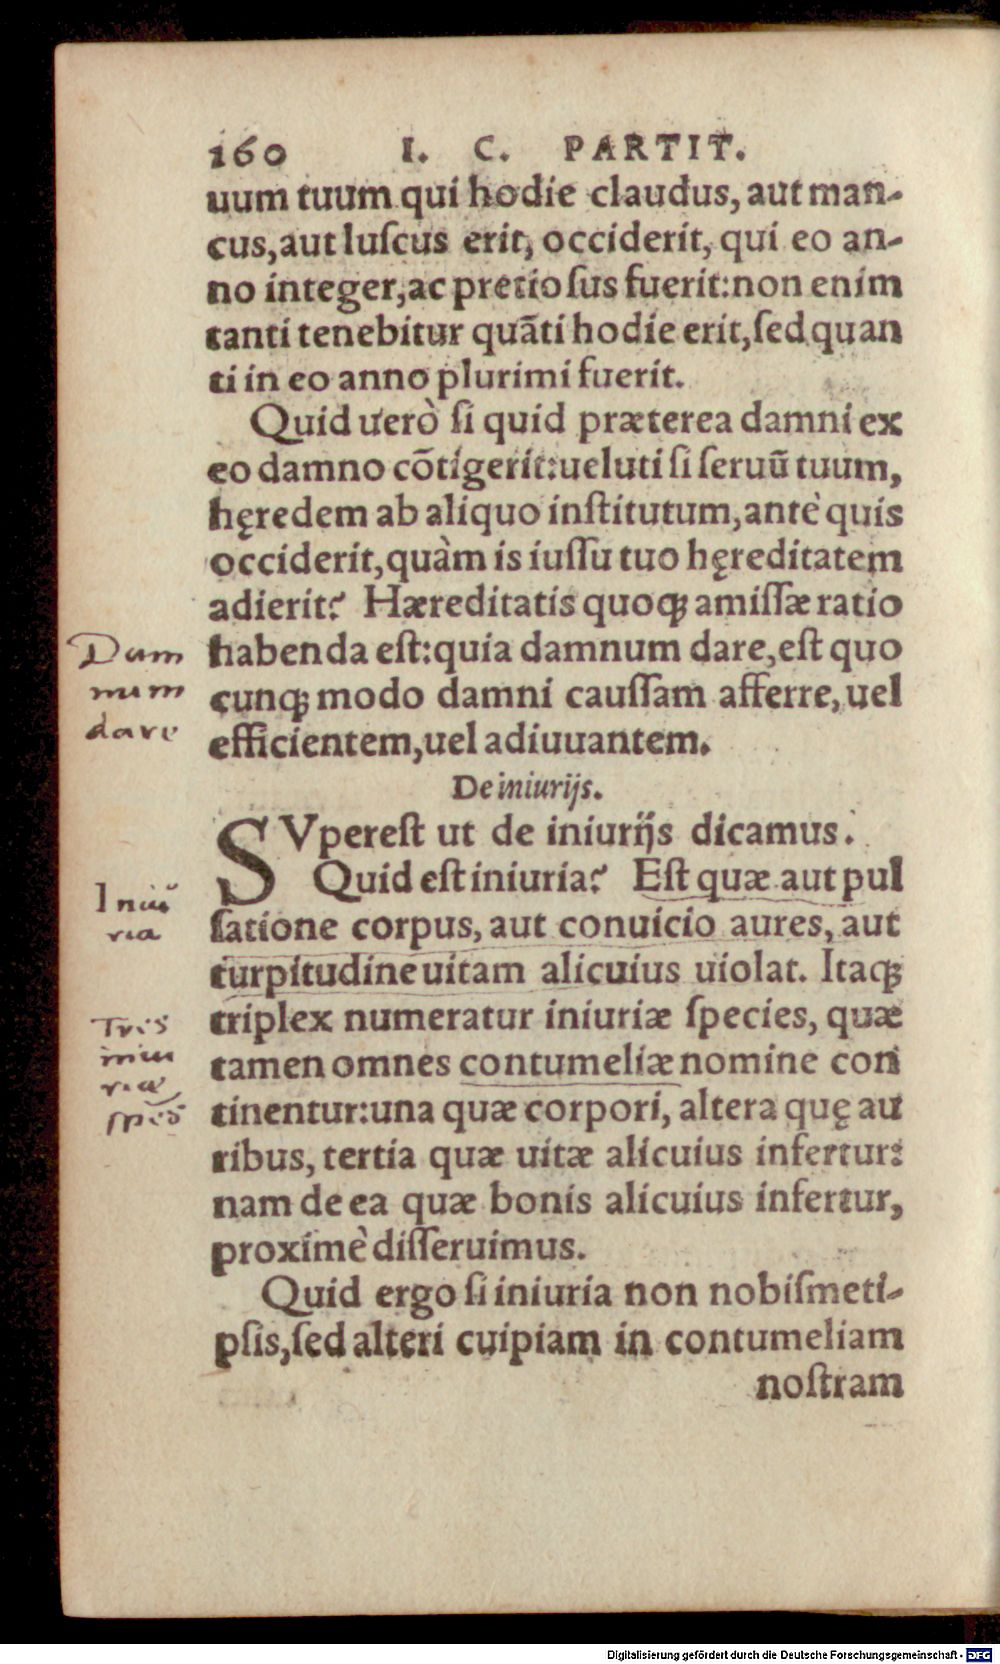 160 I. C. PARTIT.
uum tuum qui hodie claudus, aut man-
cus, aut luſcus erit, occiderit, qui eo an-
no integer, ac pretioſus fuerit: non enim
tanti tenebitur quāti hodie erit, ſed quan
ti in eo anno plurimi fuerit.
Quid uerò ſi quid præterea damni ex
eo damno cōtigerit: ueluti ſi ſeruū tuum,
hęredem ab aliquo inſtitutum, antè quis
occiderit, quàm is iuſſu tuo hęreditatem
adierit? Hæreditatis quoqꝫ amiſſæ ratio
habenda eſt: quia damnum dare, eſt quo
cunqꝫ modo damni cauſſam afferre, uel
efficientem, uel adiuuantem.
Dam
num
dare
De iniurijs.
SVpereſt ut de iniurijs dicamus.
Quid eſt iniuria? Eſt quæ aut pul
ſatione corpus, aut conuicio aures, aut
turpitudine uitam alicuius uiolat. Itaqꝫ
triplex numeratur iniuriæ ſpecies, quæ
tamen omnes contumeliæ nomine con
tinentur: una quæ corpori, altera quę au
ribus, tertia quæ uitæ alicuius infertur:
nam de ea quæ bonis alicuius infertur,
proximè diſſeruimus.
Iniu
ria
Tres
iniu
riæ
Quid ergo ſi iniuria non nobiſmeti-
pſis, ſed alteri cuipiam in contumeliam
noſtram
Digitalisierung gefördert durch die Deutsche Forschungsgemeinschaft - DFG